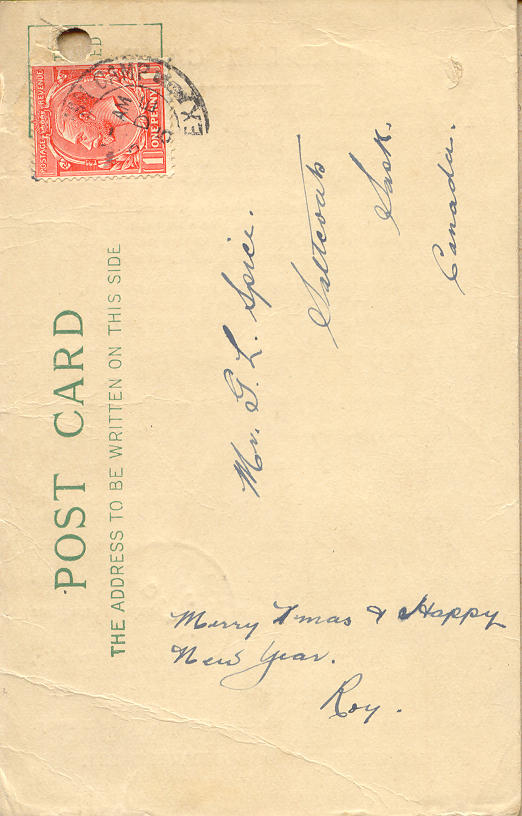 POST CARD
THE ADDRESS TO BE WRITTEN ON THIS SIDE
POSTAGE REVENUE
ONE PENNY
AM
DE
EX
Mr. G. L. Spice.
Saltcoats
Sask.
Canada.
Merry Xmas & Happy
New Year.
Roy.